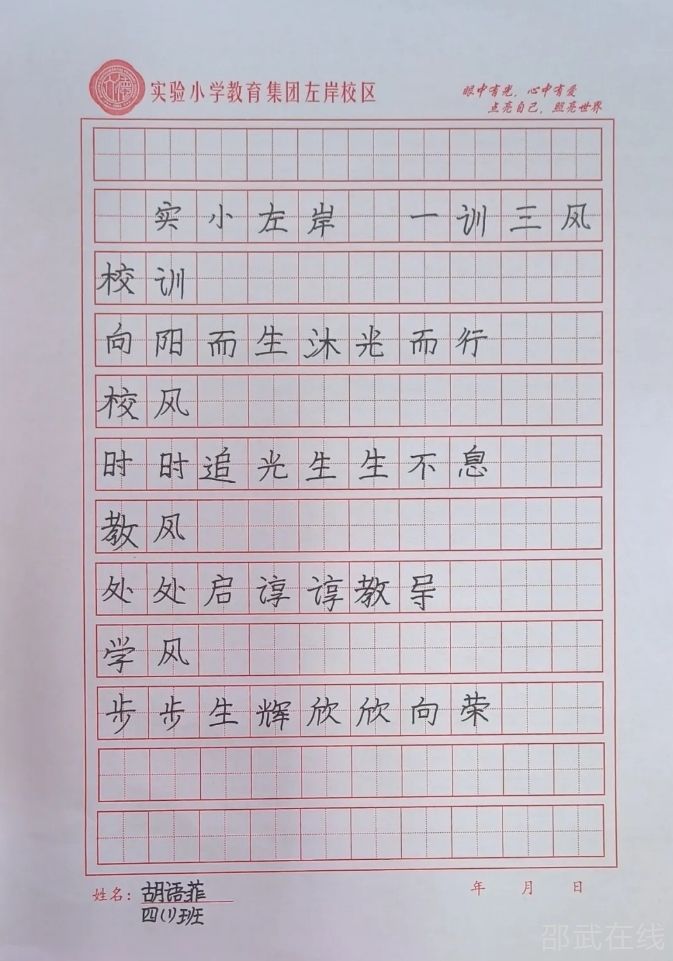 实验小学教育集团左岸校区
眼中有光，心中有爱
点亮自己，照亮世界
实小左岸 一训三风
校训
向阳而生沐光而行
校风
时时追光生生不息
教风
处处启谆谆教导
学风
步步生辉欣欣向荣
姓名：胡语菲
四(1)班
年 月 日
邵武在线